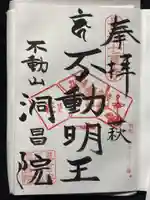 奉拝
秋
不動明王
不動山
洞昌院